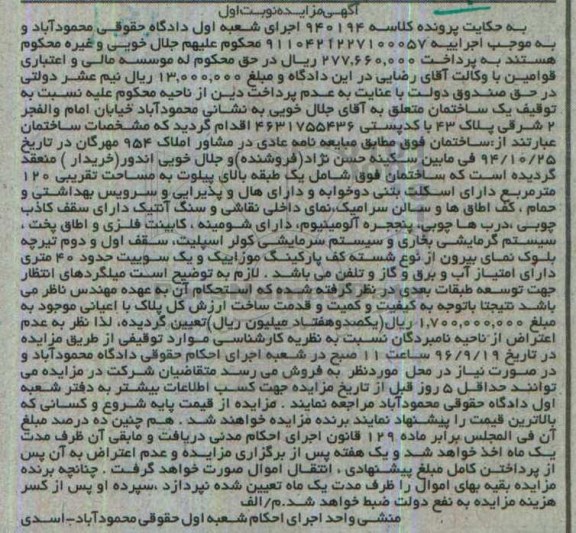 آگهی مزایده نوبت اول
به حکایت پرونده کلاسه ۹۴۰۱۹۴ اجرای شعبه اول دادگاه حقوقی محمودآباد و
به موجب اجراییه ۹۱۱۰۴۲۱۲۲۷۱۰۰۰۵۷ محکوم علیهم جلال خویی و غیره محکوم
هستند به پرداخت ۲۷۷,۶۶۰,۰۰۰ ریال در حق محکوم له موسسه مالی و اعتباری
قوامین با وکالت آقای رضایی در این دادگاه و مبلغ ۱۳,۰۰۰,۰۰۰ ریال نیم عشر دولتی
در حق صندوق دولت با عنایت به عدم پرداخت دین از ناحیه محکوم علیه نسبت به
توقیف یک ساختمان متعلق به آقای جلال خویی به نشانی محمودآباد خیابان امام والفجر
۲ شرقی پلاک ۴۳ با کدپستی ۴۶۳۱۷۵۵۴۳۶ اقدام گردید که مشخصات ساختمان
عبارتند از:ساختمان فوق مطابق مبایعه نامه عادی در مشاور املاک ۹۵۴ مهرگان در تاریخ
۹۴/۱۰/۲۵ فی مابین سکینه حسن نژاد(فروشنده)و جلال خویی اندور(خریدار ) منعقد
گردیده است که ساختمان فوق شامل یک طبقه بالای پیلوت به مساحت تقریبی ۱۲۰
مترمربع دارای اسکلت بتنی دوخوابه و دارای هال و پذیرایی و سرویس بهداشتی و
حمام ، کف اطاق ها و سالن سرامیک،نمای داخلی نقاشی و سنگ آنتیک دارای سقف کاذب
چوبی ،درب ها چوبی، پنجره آلومینیوم، دارای شومینه ، کابینت فلزی و اطاق پخت ،
سیستم گرمایشی بخاری و سیستم سرمایشی کولر اسپلیت، سقف اول و دوم تیرچه
بلوک نمای بیرون از نوع شسته کف پارکینگ موزاییک و یک سوییت حدود ۴۰ متری
دارای امتیاز آب و برق و گاز و تلفن می باشد . لازم به توضیح است میلگردهای انتظار
جهت توسعه طبقات بعدی در نظر گرفته شده که استحکام آن به عهده مهندس ناظر می
باشد نتیجتا باتوجه به کیفیت و کمیت و قدمت ساخت ارزش کل پلاک با اعیانی موجود به
مبلغ ۱,۷۰۰,۰۰۰,۰۰۰ ریال(یکصدوهفتاد میلیون ریال)تعیین گردیده، لذا نظر به عدم
اعتراض از ناحیه نامبردگان نسبت به نظریه کارشناسی موارد توقیفی از طریق مزایده
در تاریخ ۹۶/۹/۱۹ ساعت ۱۱ صبح در شعبه اجرای احکام حقوقی دادگاه محمودآباد و
در صورت نیاز در محل موردنظر به فروش می رسد متقاضیان شرکت در مزایده می
توانند حداقل ۵ روز قبل از تاریخ مزایده جهت کسب اطلاعات بیشتر به دفتر شعبه
اول دادگاه حقوقی محمودآباد مراجعه نمایند . مزایده از قیمت پایه شروع و کسانی که
بالاترین قیمت را پیشنهاد نمایند برنده مزایده خواهند شد . هم چنین ده درصد مبلغ
آن فی المجلس برابر ماده ۱۲۹ قانون اجرای احکام مدنی دریافت و مابقی آن ظرف مدت
یک ماه اخذ خواهد شد و یک هفته پس از برگزاری مزایده و عدم اعتراض به آن پس
از پرداختن کامل مبلغ پیشنهادی ، انتقال اموال صورت خواهد گرفت . چنانچه برنده
مزایده بقیه بهای اموال را ظرف مدت یک ماه تعیین شده نپردازد ،سپرده او پس از کسر
هزینه مزایده به نفع دولت ضبط خواهد شد.م/الف
منشی واحد اجرای احکام شعبه اول حقوقی محمودآباد-اسدی